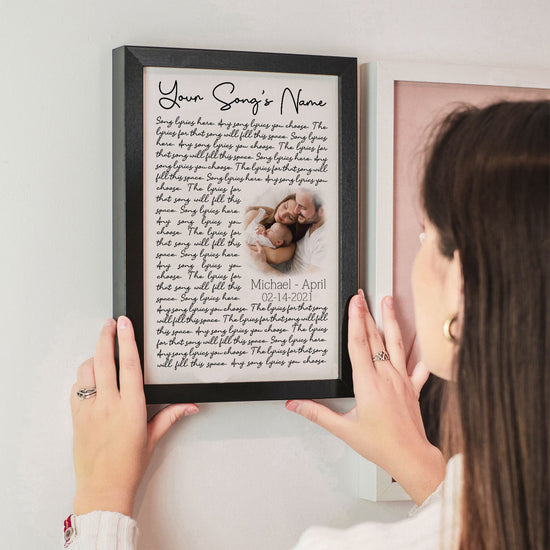 Your Song's Name
Song lyrics here. Any song lyrics you choose. The
lyrics for that song will fill this space. Song lyrics
here. Any song lyrics you choose. The lyrics for
that song will fill this space. Song lyrics here. Any
song lyrics you choose. The lyrics for that song will
fill this space. Song lyrics here. Any song lyrics you
choose. The lyrics for
that song will fill this
space. Song lyrics here.
Any song lyrics you
choose. The lyrics for
that song will fill this
space. Song lyrics here.
Any song lyrics you
choose. The lyrics for
that song will fill this
space. Song lyrics here.
Michael - April
02-14-2021
Any song lyrics you choose. The lyrics for that song
will fill this space. Song lyrics here. Any song lyrics
you choose. The lyrics for that song will fill this
space. Any song lyrics you choose. The lyrics for
that song will fill this space. Song lyrics here. Any
song lyrics you choose. The lyrics for that song
will fill this space. Any song lyrics you choose.